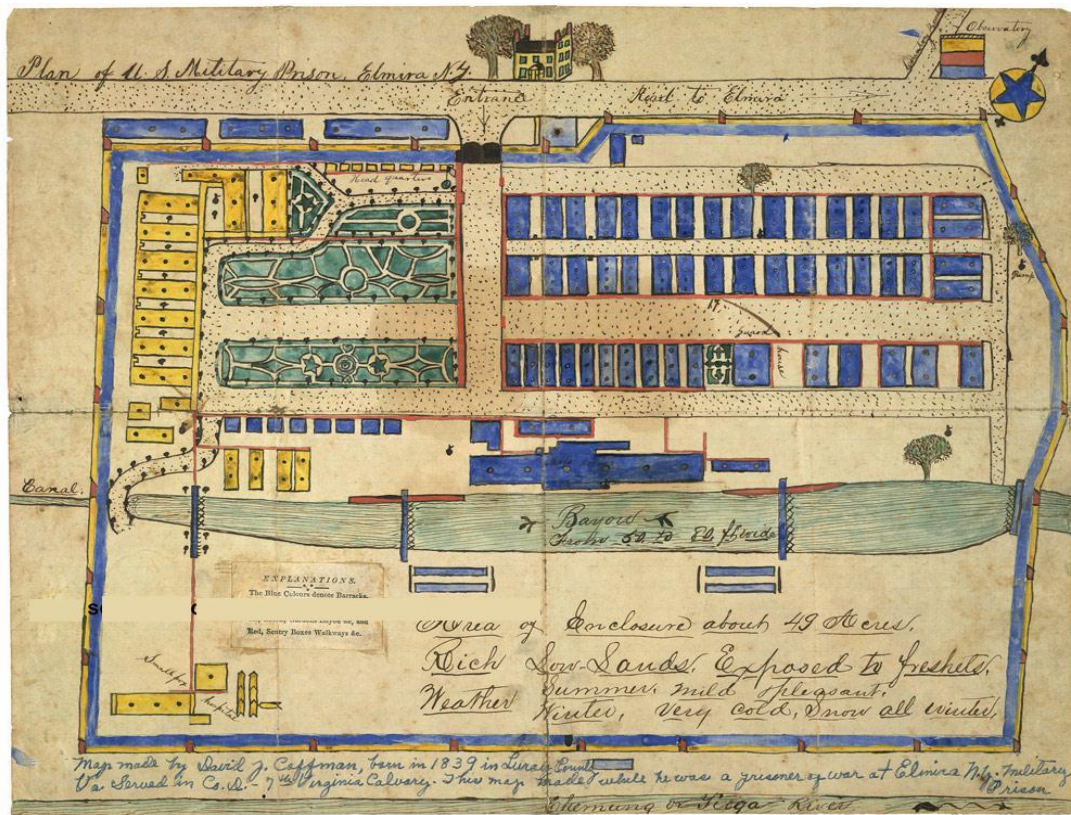 Observatory
Plan of U. S. Military Prison, Elmira N.Y.
Entrance
Road to Elmira
Head quarters
Pump
17
guard
house
Canal.
Bayou
From 50 to 80 ft wide
EXPLANATIONS.
The Blue Colours denote Barracks.
Red, Sentry Boxes Walkways &c.
Area of Enclosure about 49 Acres.
Rich Low-Lands. Exposed to freshets.
Summer, mild & pleasant.
Weather
Winter, very cold, Snow all winter,
Smallpox
hospital
Map made by David J. Coffman, born in 1839 in Luray County
Va. Served in Co. D. - 7th Virginia Calvary. This map made while he was a prisoner of war at Elmira N.Y. Military
Prison
Chemung or Tioga River